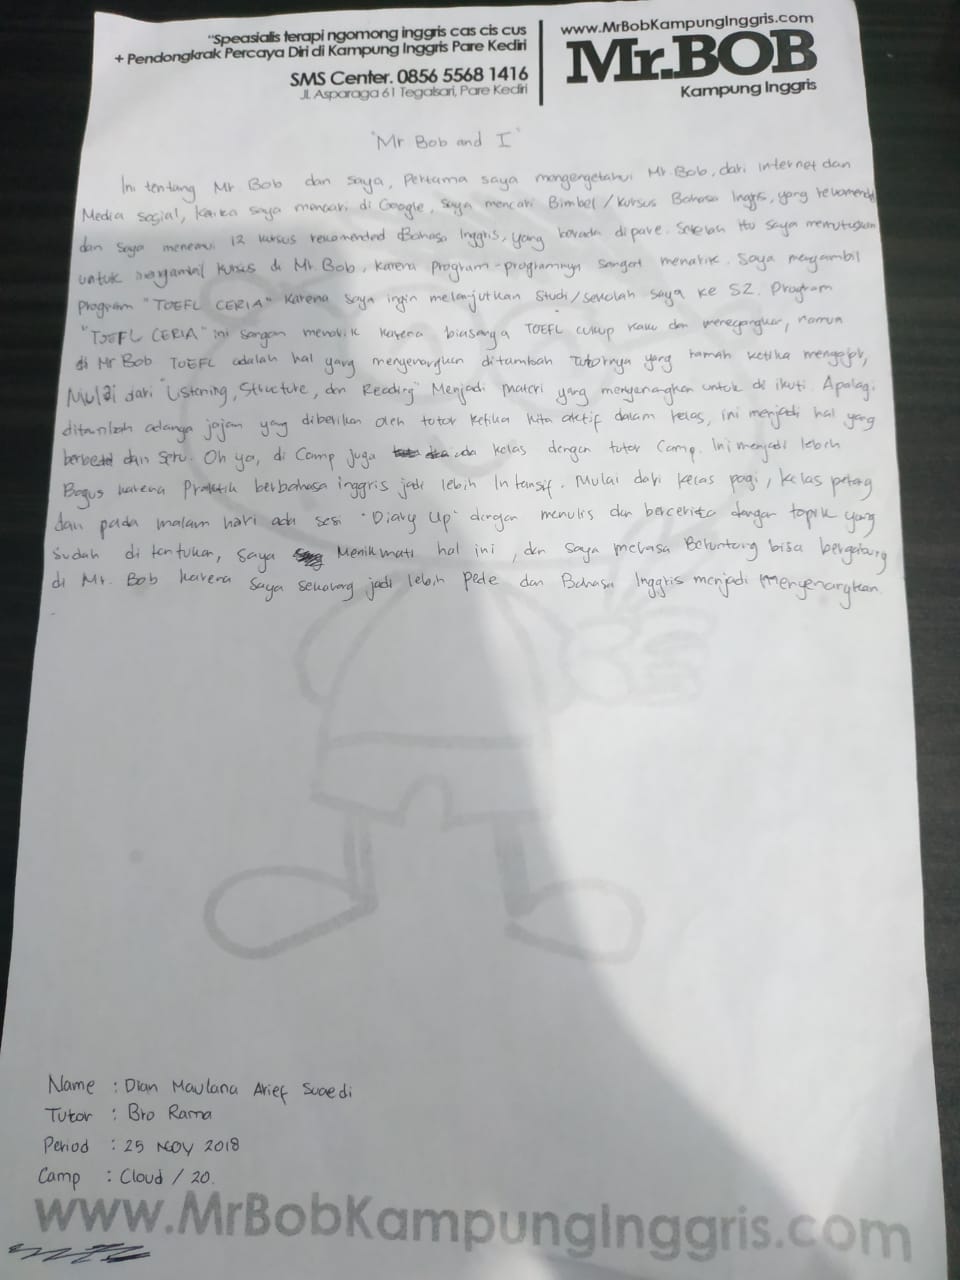 "Speasialis terapi ngomong inggris cas cis cus
+ Pendongkrak Percaya Diri di Kampung Inggris Pare Kediri
SMS Center. 0856 5568 1416
Jl. Asparaga 61 Tegalsari, Pare Kediri
www.MrBobKampungInggris.com
Mr.BOB
Kampung Inggris
"Mr Bob and I"
Ini tentang Mr Bob dan saya, Pertama saya mengengetahui Mr Bob, dari internet dan
Media sosial, ketika saya mencari di Google, saya mencari Bimbel / Kursus Bahasa Inggris, yang rekomended
dan saya menemui 12 kursus rekomended Bahasa Inggris, yang berada di pare. Setelah itu saya memutuskan
untuk mengambil kursus di Mr. Bob, karena program-programnya sangat menarik. Saya mengambil
Program "TOEFL CERIA" karena saya ingin melanjutkan studi/sekolah saya ke S2. Program
"TOEFL CERIA" ini sangan menarik karena biasanya TOEFL cukup kaku dan menegangkan, namun
di Mr Bob TOEFL adalah hal yang menyenangkan ditambah tutornya yang ramah ketika mengajar,
Mulai dari "Listening, Structure, dan Reading" Menjadi materi yang menyenangkan untuk di ikuti. Apalagi
ditambah adanya jajan yang diberikan oleh tutor ketika kita aktif dalam kelas, ini menjadi hal yang
berbeda dan seru. Oh ya, di Camp juga ada kelas dengan tutor Camp. Ini menjadi lebih
Bagus karena Praktik berbahasa inggris jadi lebih Intansif. Mulai dari kelas pagi, kelas petang
dan pada malam hari ada sesi "Diary Up" dengan menulis dan bercerita dengan topik yang
sudah di tentukan, saya Menikmati hal ini, dan saya merasa Beruntung bisa bergabung
di Mr. Bob karena saya sekarang jadi lebih pede dan Bahasa Inggris menjadi menyenangkan.
Name : Dian Maulana Arief Suaedi
Tutor : Bro Rama
Period : 25 NOV 2018
Camp : Cloud / 20.
www.MrBobKampungInggris.com